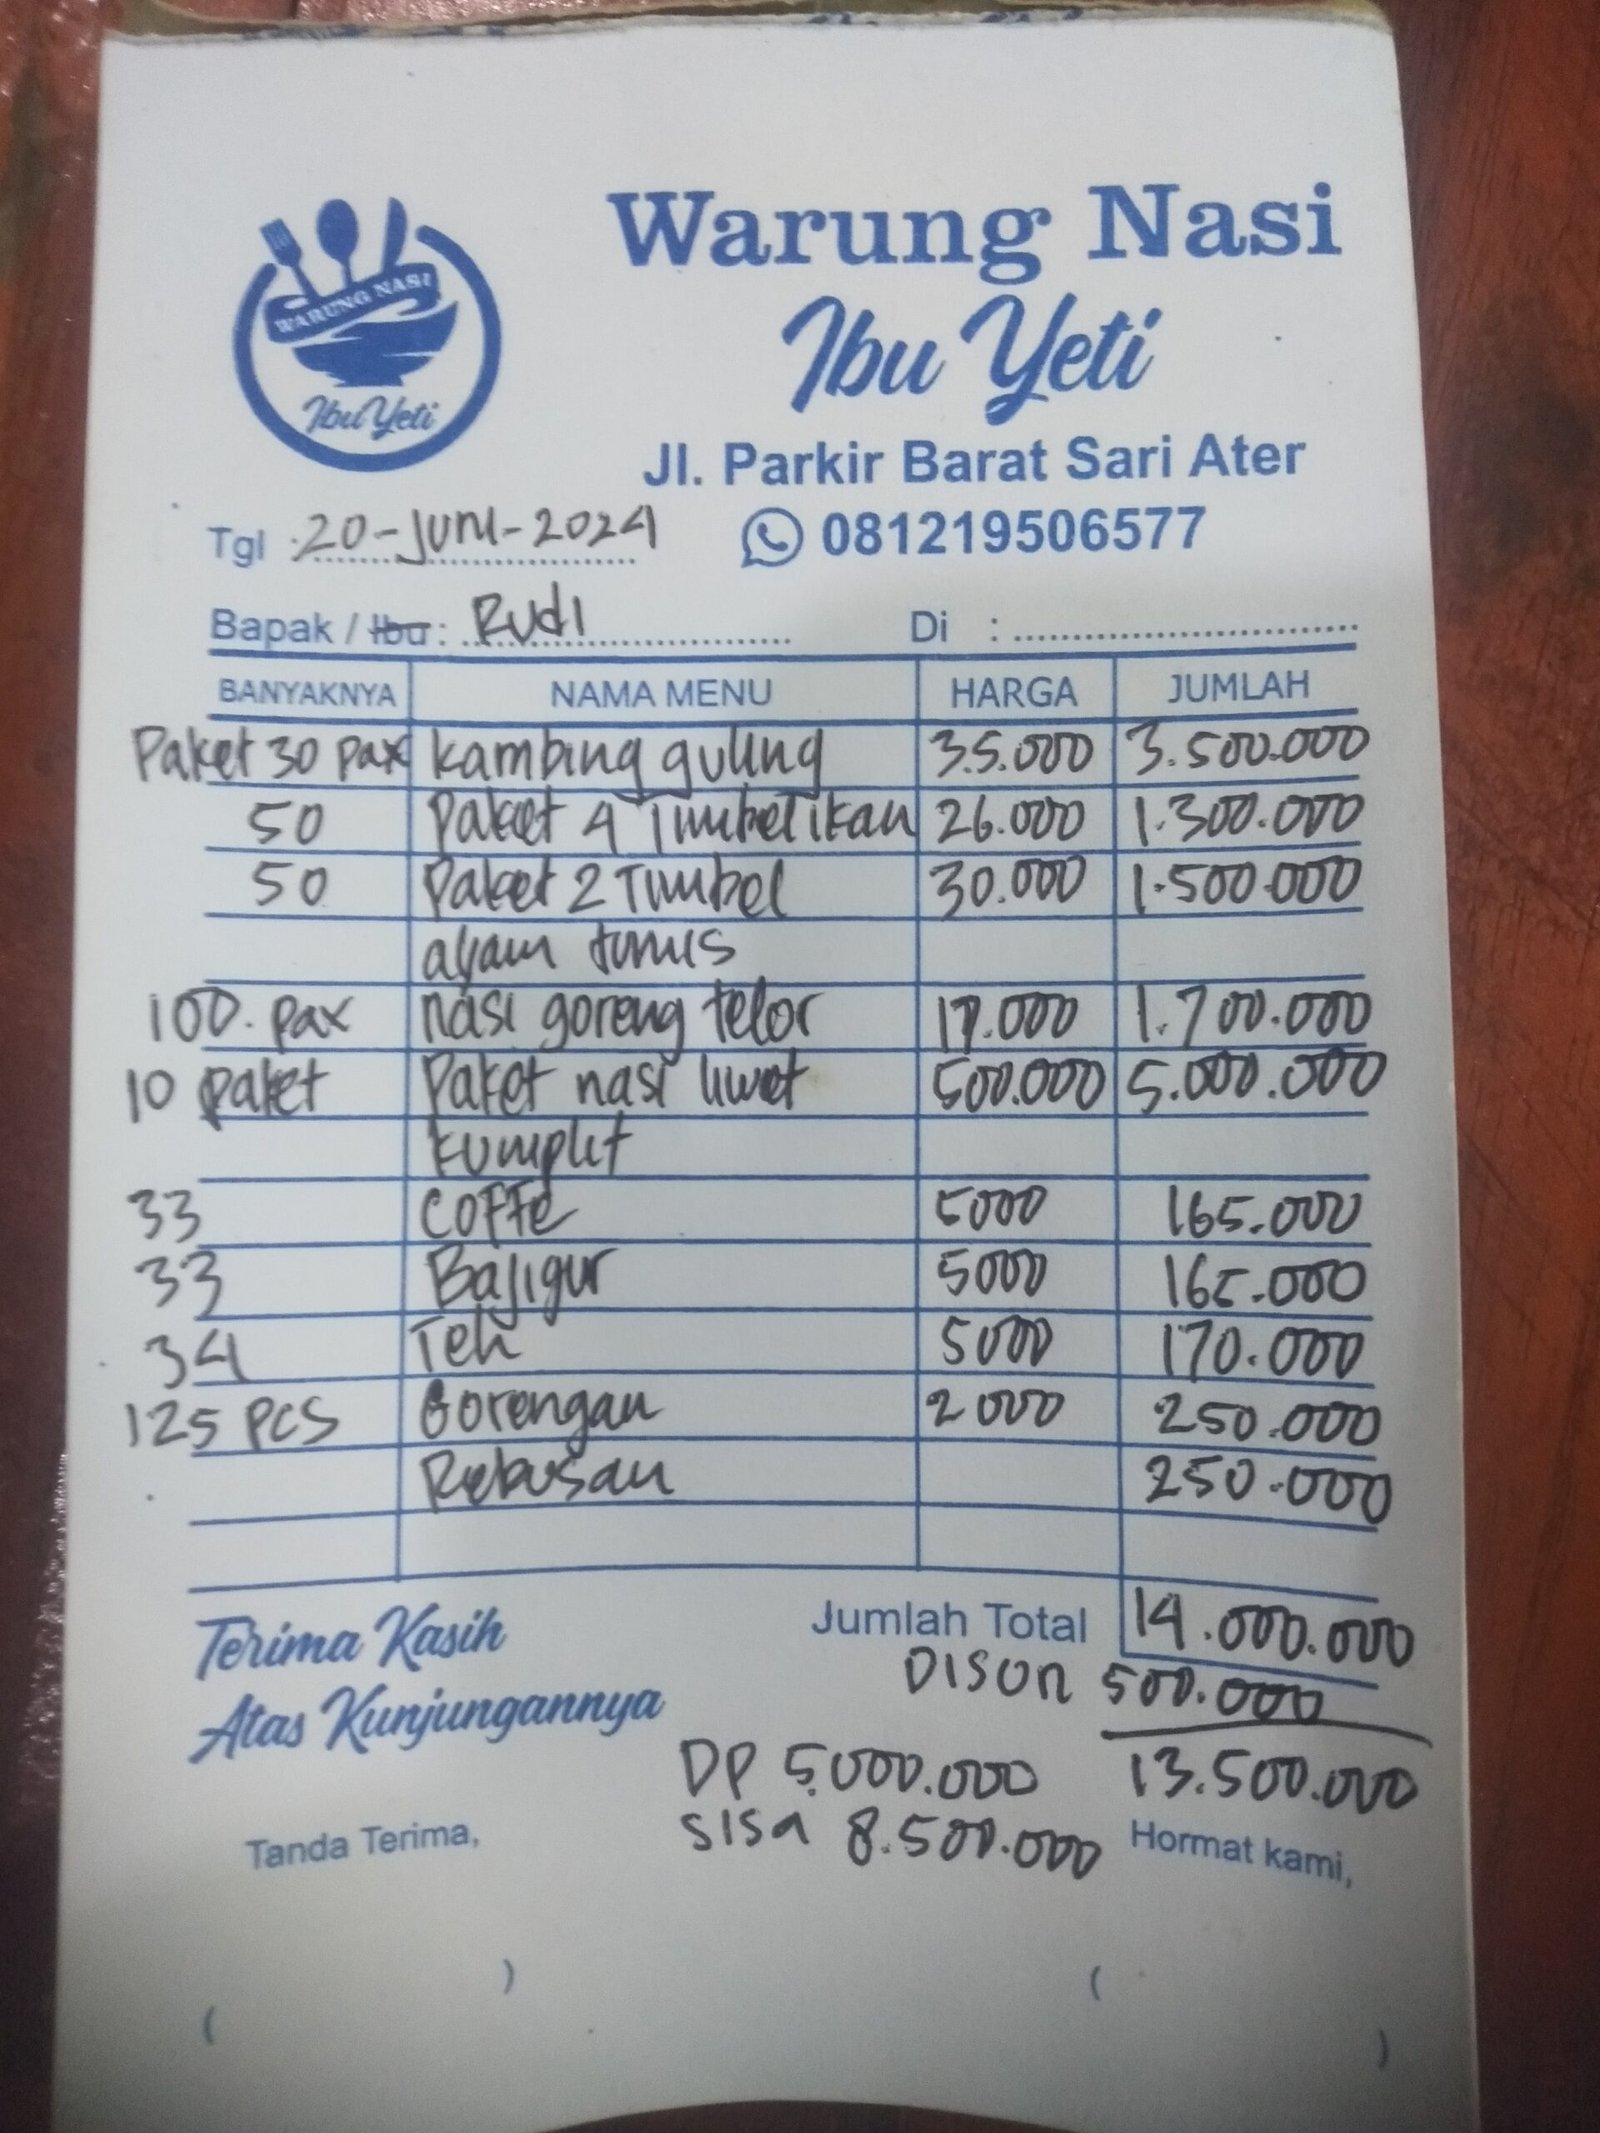 WARUNG NASI
Ibu Yeti
Warung Nasi
Ibu Yeti
Jl. Parkir Barat Sari Ater
Tgl : 20-Juni-2024 081219506577
Bapak / Ibu : Rudi Di :
BANYAKNYA NAMA MENU HARGA JUMLAH
Paket 30 pax kambing guling 35.000 3.500.000
50 Paket 4 Timbel ikan 26.000 1.300.000
50 Paket 2 Timbel 30.000 1.500.000
ayam tumis
100. pax nasi goreng telor 17.000 1.700.000
10 paket Paket nasi liwet 500.000 5.000.000
kumplit
33 COFFE 5000 165.000
33 Bajigur 5000 165.000
34 Teh 5000 170.000
125 PCS Gorengan 2000 250.000
Rebusan 250.000
Terima Kasih Jumlah Total 14.000.000
Atas Kunjungannya DISON 500.000
DP 5.000.000 13.500.000
Tanda Terima, SISA 8.500.000 Hormat kami,
( ) ( )